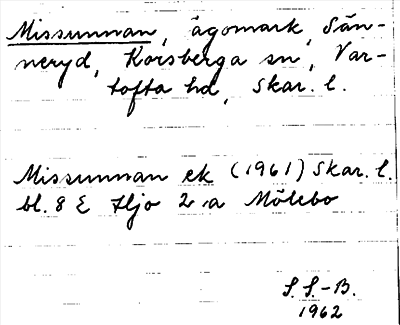 Missunnan, ägomark, Sän-
neryd, Korsberga sn, Var-
tofta hd, Skar. l.
Missunnan ek (1961) Skar. l.
bl. 8 E Hjo 2 a Mölebo
S. S.-B.
1962